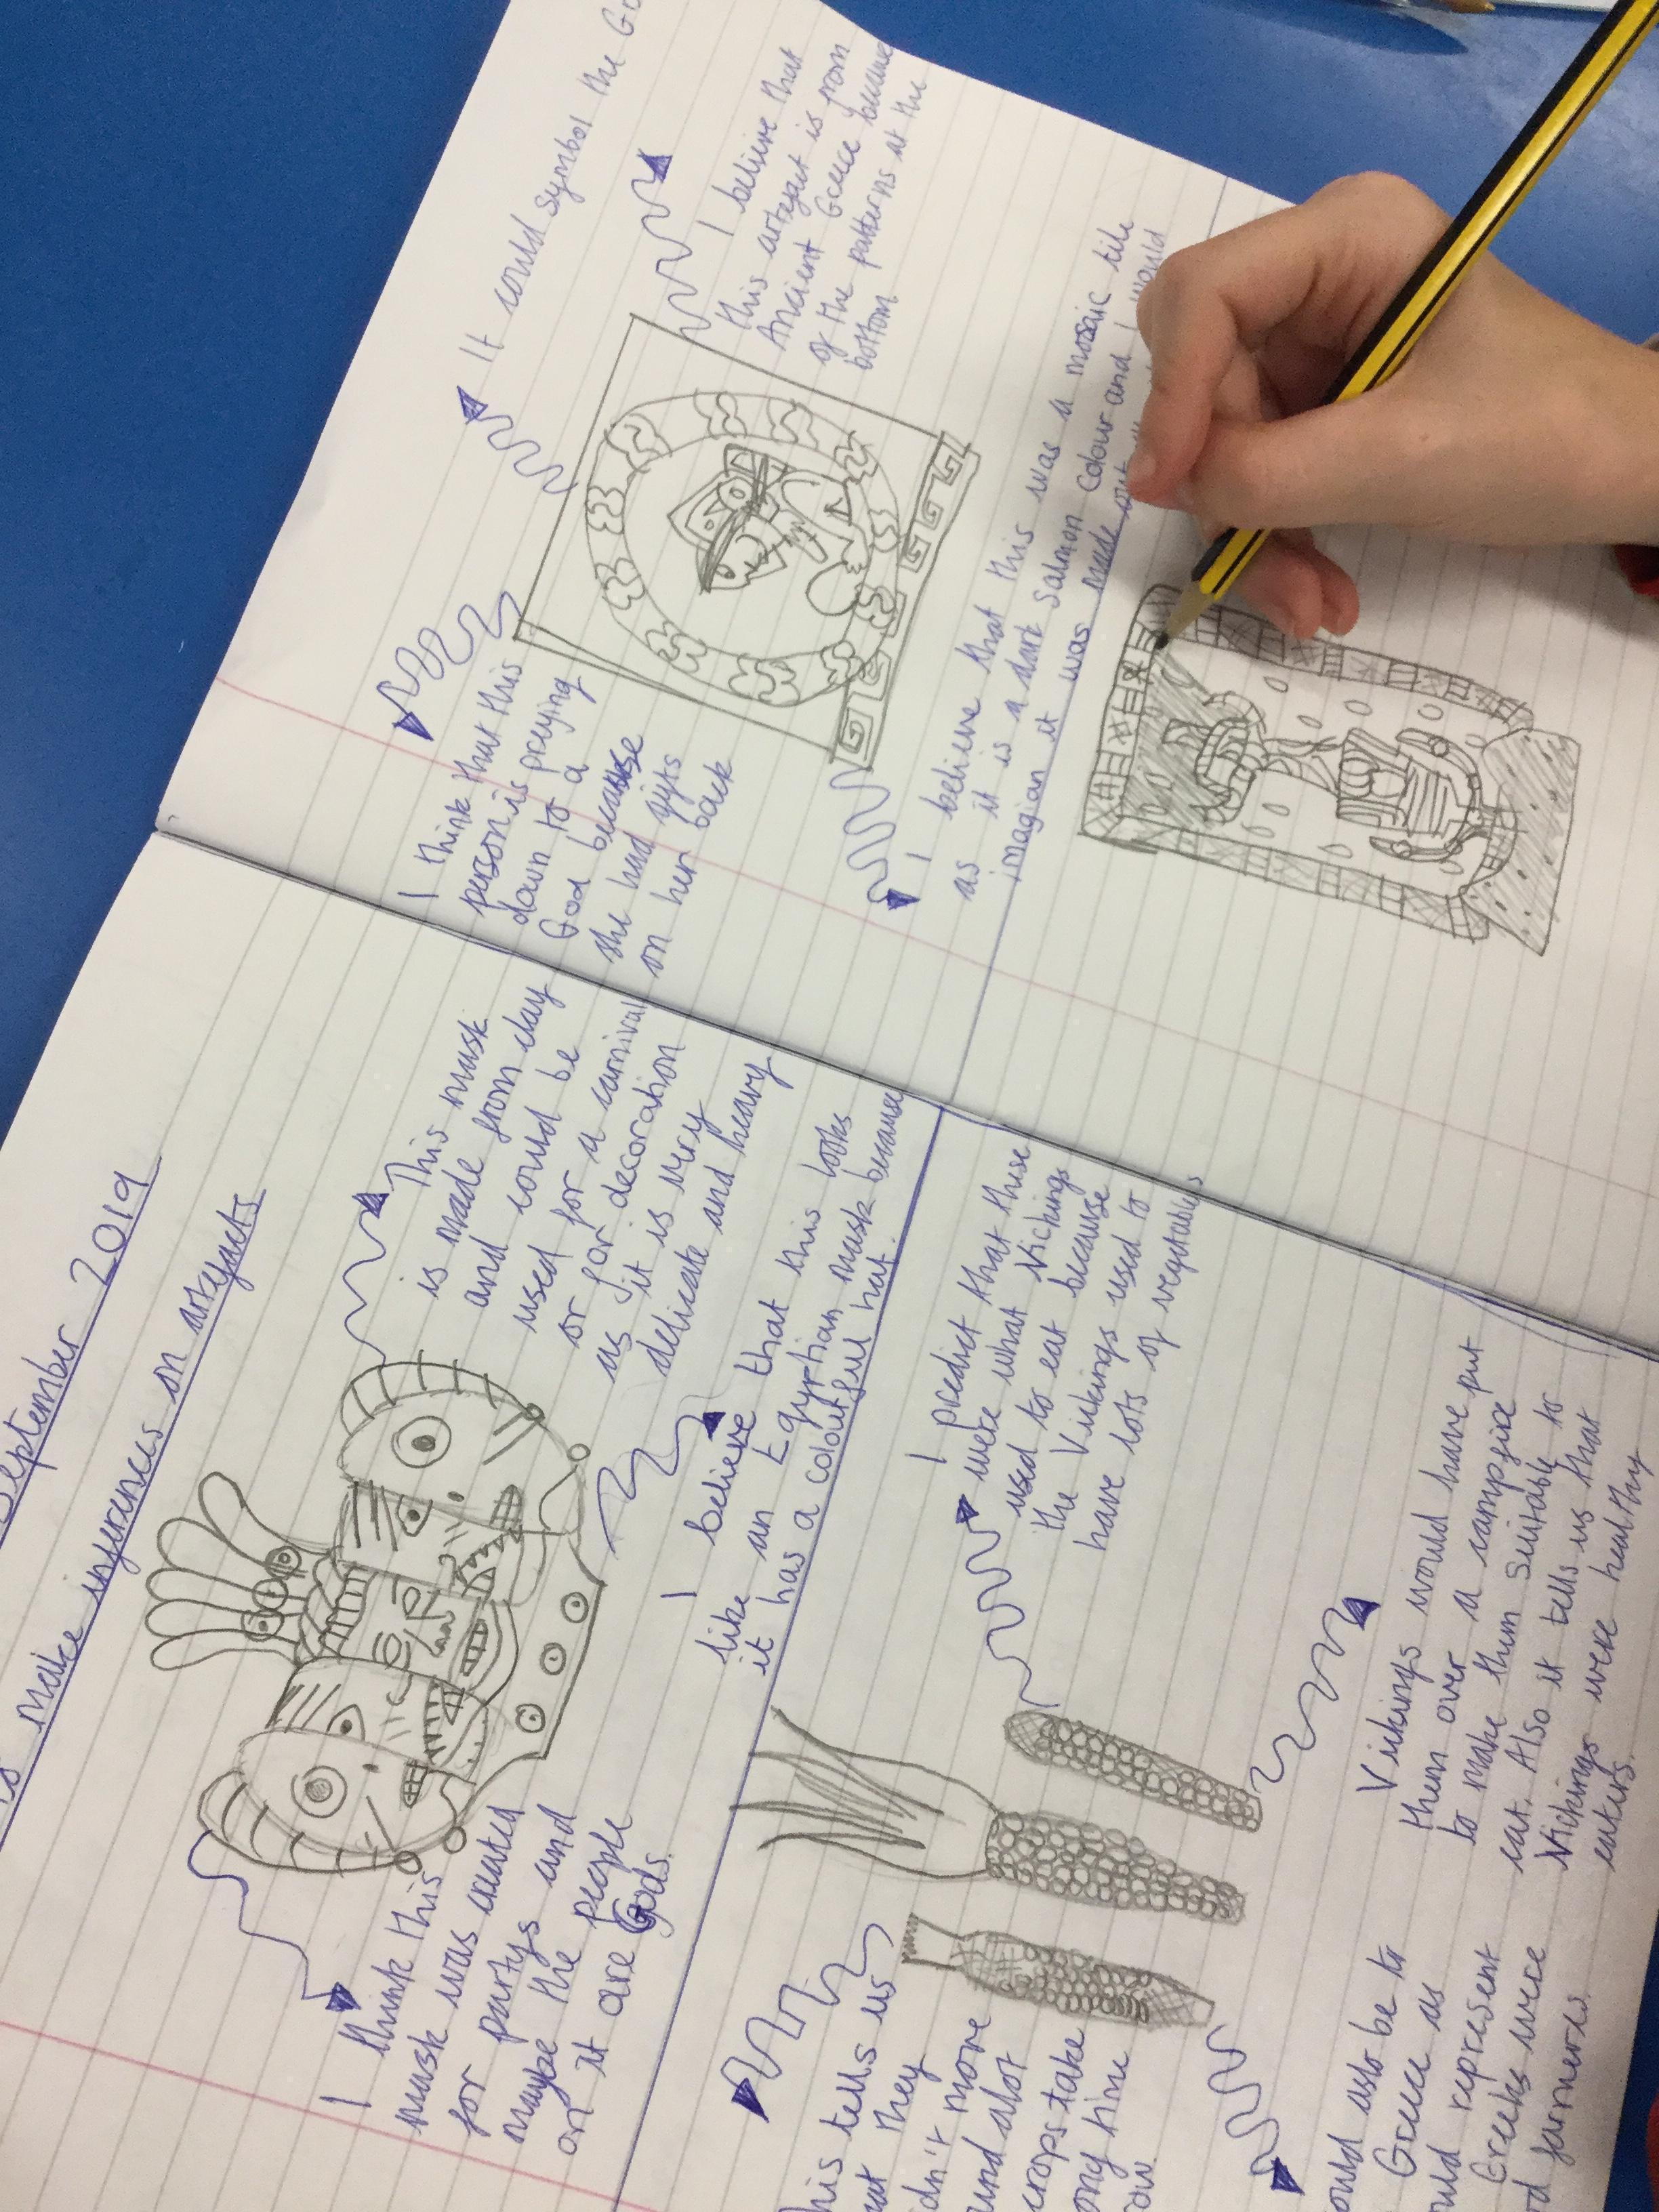 September 2019
make inferences on artefacts
I think this
mask was created
for partys and
maybe the people
on it are Gods.
This mask
is made from clay
and could be
used for a carnival
or for decoration
as it is very
delicate and heavy
I believe that this looks
like an Egyptian mask because
it has a colourful hat.
This tells us
that they
didn't move
around alot
crops take
long time
I predict that these
were what Vickings
used to eat because
the Vickings used to
have lots of vegatables
Vickings would have put
them over a campfire
to make them suitable to
eat. Also it tells us that
Vickings were healthy
eaters.
could also be to
Greece as
would represent
Greeks were
farmeres.
I think that this
person is preying
down to a
God because
she had gifts
on her back
It could symbol the
I believe that
this artefact is from
Ancient Greece because
of the patterns at the
bottom
I believe that this was a mosaic tile
as it is a dark salmon colour and I would
imagian it was made out